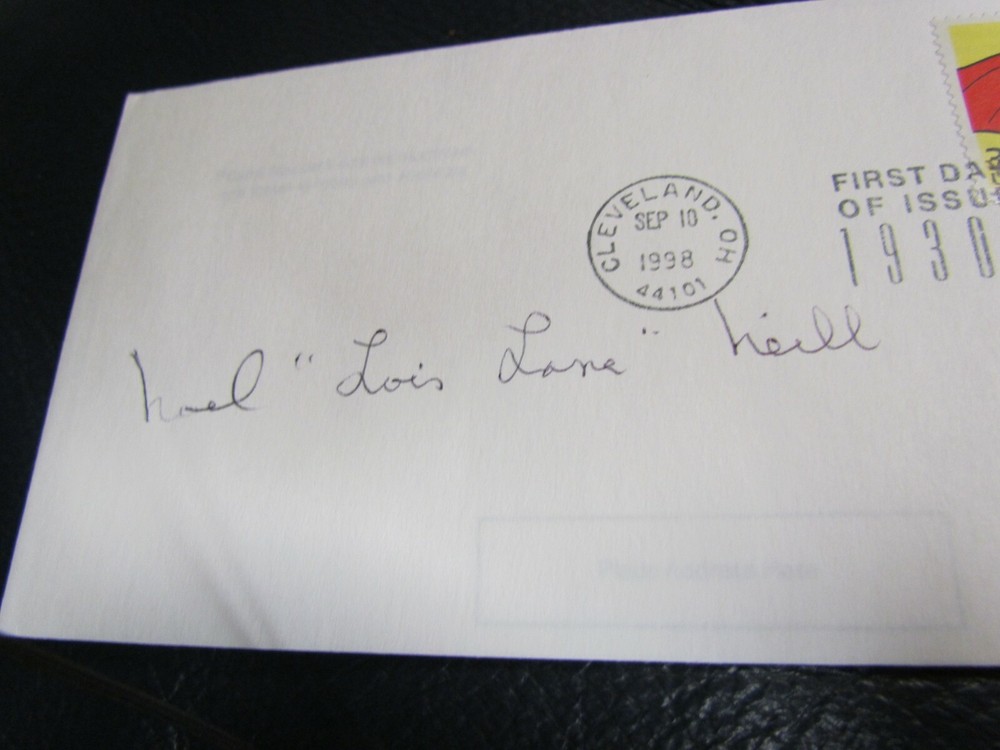 CLEVELAND, OH
SEP 10
1998
44101
FIRST DA
OF ISSU
1930
Noel "Lois Lane" Neill